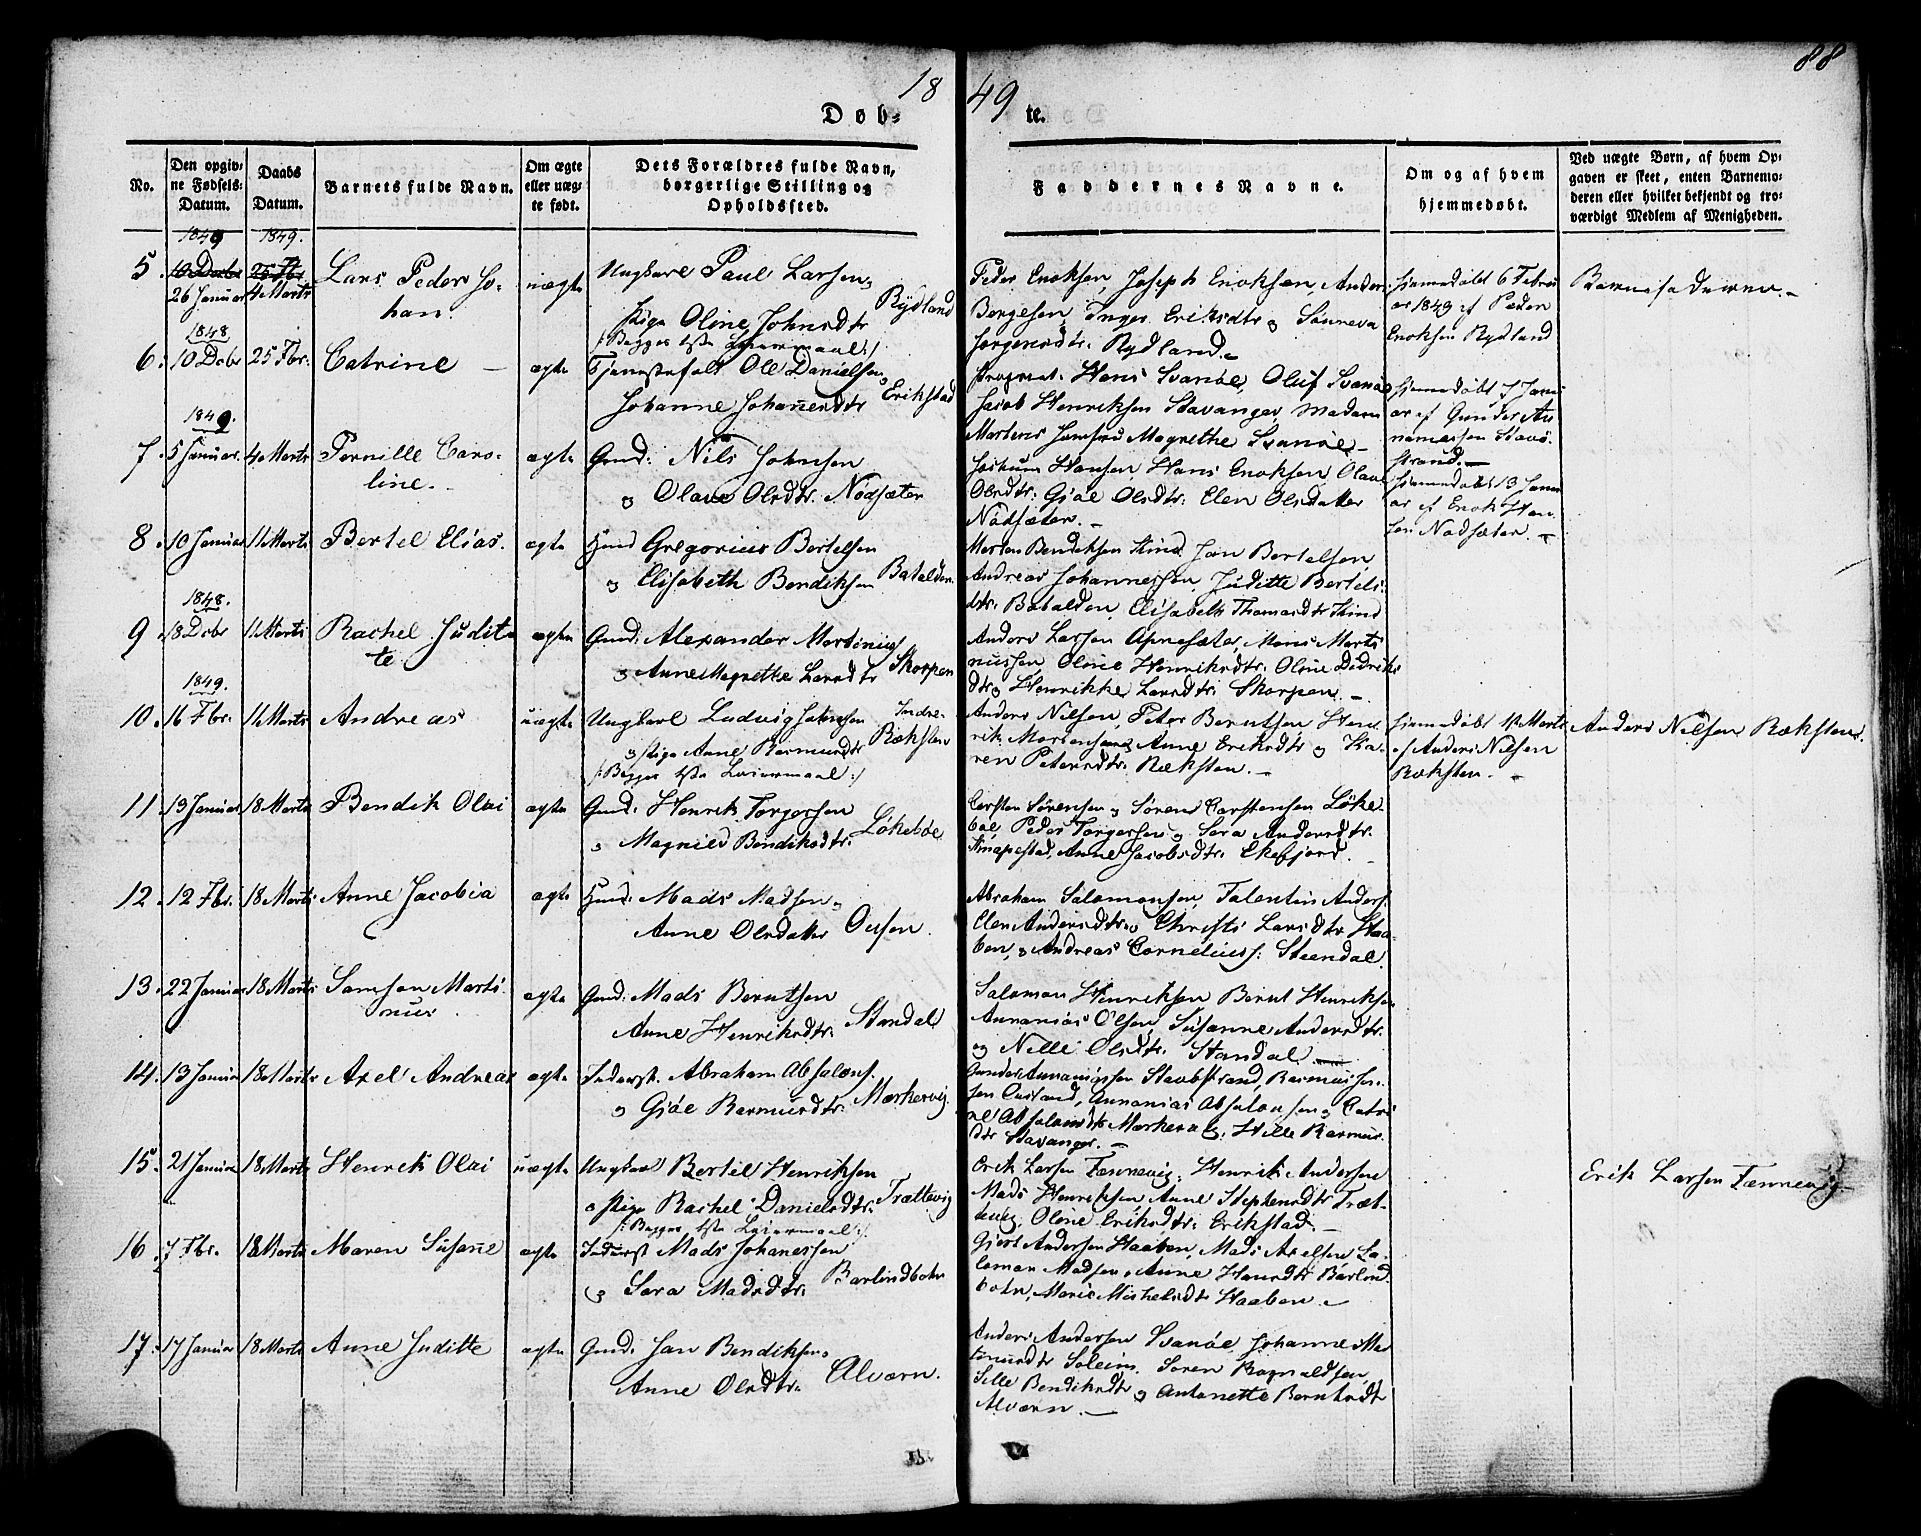 88
18 49
Døb- te.
No.
Den opgiv-
ne Fødsels-
Datum.
Daabs
Datum.
Barnets fulde Navn.
Om ægte
eller uæg-
te født.
Dets Forældres fulde Navn,
borgerlige Stilling og
Opholdssted.
Faddernes Navne.
Om og af hvem
hjemmedøbt.
Ved uægte Børn, af hvem Op-
gaven er skeet, enten Barnemo-
deren eller hvilket bekjendt og tro-
værdigt Medlem af Menigheden.
1849 1849.
5. 26 Januar 4 Marts Lars Peder Jo-
han.
uægte
Ungkarl Paul Larsen
Pige Oline Johnsdtr Rydland
/: Begges 1ste Leiermaal :/
Peder Enoksen, Joseph Enoksen, Anders
Børgesen, Inger Eriksdtr og Sønneva
Jørgensdtr. Rydland.
Hjemmedøbt 6 Febru
ar 1849 af Peder
Enoksen Rydland
Barnefaderen.
1848
6. 10 Decbr 25 Fbr. Catrine ægte
Tjenestefolk Ole Danielsen
Johanne Johannesdtr Erikstad
Hans Svanøe, Oluf Svanøe
Jacob Henriksen Stavanger Madam
Martens Jomfru Magrethe Svanøe
Hjemmedøbt 7 Janu
ar af Gunder An
naniassen Stavø
strand.
1849.
7. 5 Januar. 4 Marts Pernille Caro-
line.
ægte
Gmd: Nils Johnsen
og Olave Olsdtr. Nødsæter
Jockum Hansen, Hans Enoksen, Olave
Olsdtr. Gjøe Olsdtr. Elen Olsdatter
Nødsæter.
Hjemmedøbt 13 Janu
ar af Enok Han
sen Nødsæter.
8. 10 Januar 11 Marts Bertel Elias. ægte
Hmd Gregorius Bertelsen
og Elisabeth Bendiksen Batalden.
Morten Bendiksen Kind Jan Bertelsen,
Andreas Johannessen Juditte Bertels
dtr. Batalden, Elisabeth Thomasdtr Kind
1848.
9. 18 Decbr 11 Marts Rachel Judit-
te
ægte
Gmd: Alexander Martinius
og Anne Magrethe Larsdtr Skorpen
Anders Larsen Apnesæter, Mons Marti
nussen, Oline Henriksdtr. Oline Didriks
dtr og Henrikke Larsdtr. Skorpen.
1849.
10. 16 Fbr. 11 Marts Andreas uægte
Ungkarl Ludvig Johnsen
og Pige Anne Rasmusdtr
Indre
Ræksten
/: Begges 1ste Leiermaal :/
Anders Nilsen, Peter Berntsen, Hen
rik Mortensen, Anne Eriksdtr og Ka-
ren Petersdtr. Ræksten.
Hjemmedøbt 1 Marts
af Anders Nilsen
Ræksten.
Anders Nilsen Ræksten.
11. 19 Januar 18 Marts Bendik Olai ægte
Gmd: Henrik Torgersen
og Magnild Bendiksdtr. Løkeböe
Carsten Sørensen og Søren Carstensen Løke-
böe, Peder Torgersen og Sara Andersdtr.
Knapestad, Anne Jacobsdtr. Ekefjord.
12. 12 Fbr. 18 Marts Anne Jacobia ægte
Hmd: Mads Madsen
Anne Olsdatter Ousen.
Abraham Salomonsen, Talentin Anders.
Elen Andersdtr. Christi Larsdtr Haa-
ben, og Andreas Corneliuss: Steendal.
13. 22 Januar 18 Marts Samson Marti
nus
ægte
Gmd: Mads Berntsen
Anne Henriksdtr. Standal
Salomon Henriksen Bernt Henriksen
Annanias Olsen, Susanne Andersdtr.
og Nille Olsdtr. Standal
14. 13 Januar 18 Marts Axel Andreas ægte
Inderst. Abraham Absalons.
og Gjøe Rasmusdtr. Markevig.
Gunder Annaniassen Stavøstrand, Rasmus
Annanias Absalonsen og Catri
ne Absalonsdtr Markevig. Hille Rasmus
dtr Stavanger.
15. 21 Januar 18 Marts Henrik Olai uægte
Ungkarl Bertel Henriksen
og Pige Rachel Danielsdtr. Trættevig
/: Begges 1ste Leiermaal :/
Erik Larsen Fænnevig, Henrik Andersen
Mads Henriksen Anne Stephensdtr Træt-
tevig, Oline Eriksdtr. Erikstad.
Erik Larsen Fænnevig
16. 7 Fbr. 18 Marts Maren Susane ægte
Inderst Mads Johanessen
og Sara Madsdtr. Barlindbotn
Gjert Andersen Haaben, Mads Axelsen Sa-
lomon Madsen, Anne Hansdtr Barlind
botn, Marie Mickelsdtr Haaben.
17. 17 Januar 18 Marts Anne Juditte ægte
Gmd. Jan Bendiksen
Anne Olsdtr. Alværn.
Anders Andersen Svanøe, Johanne
Soleim Søren Rognaldsen,
Sille Bendiksdtr og Antonette Berntsdtr
Alværn.